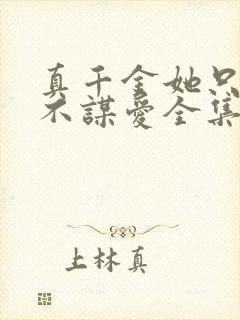 真千金她只
不謀愛全集
上林真